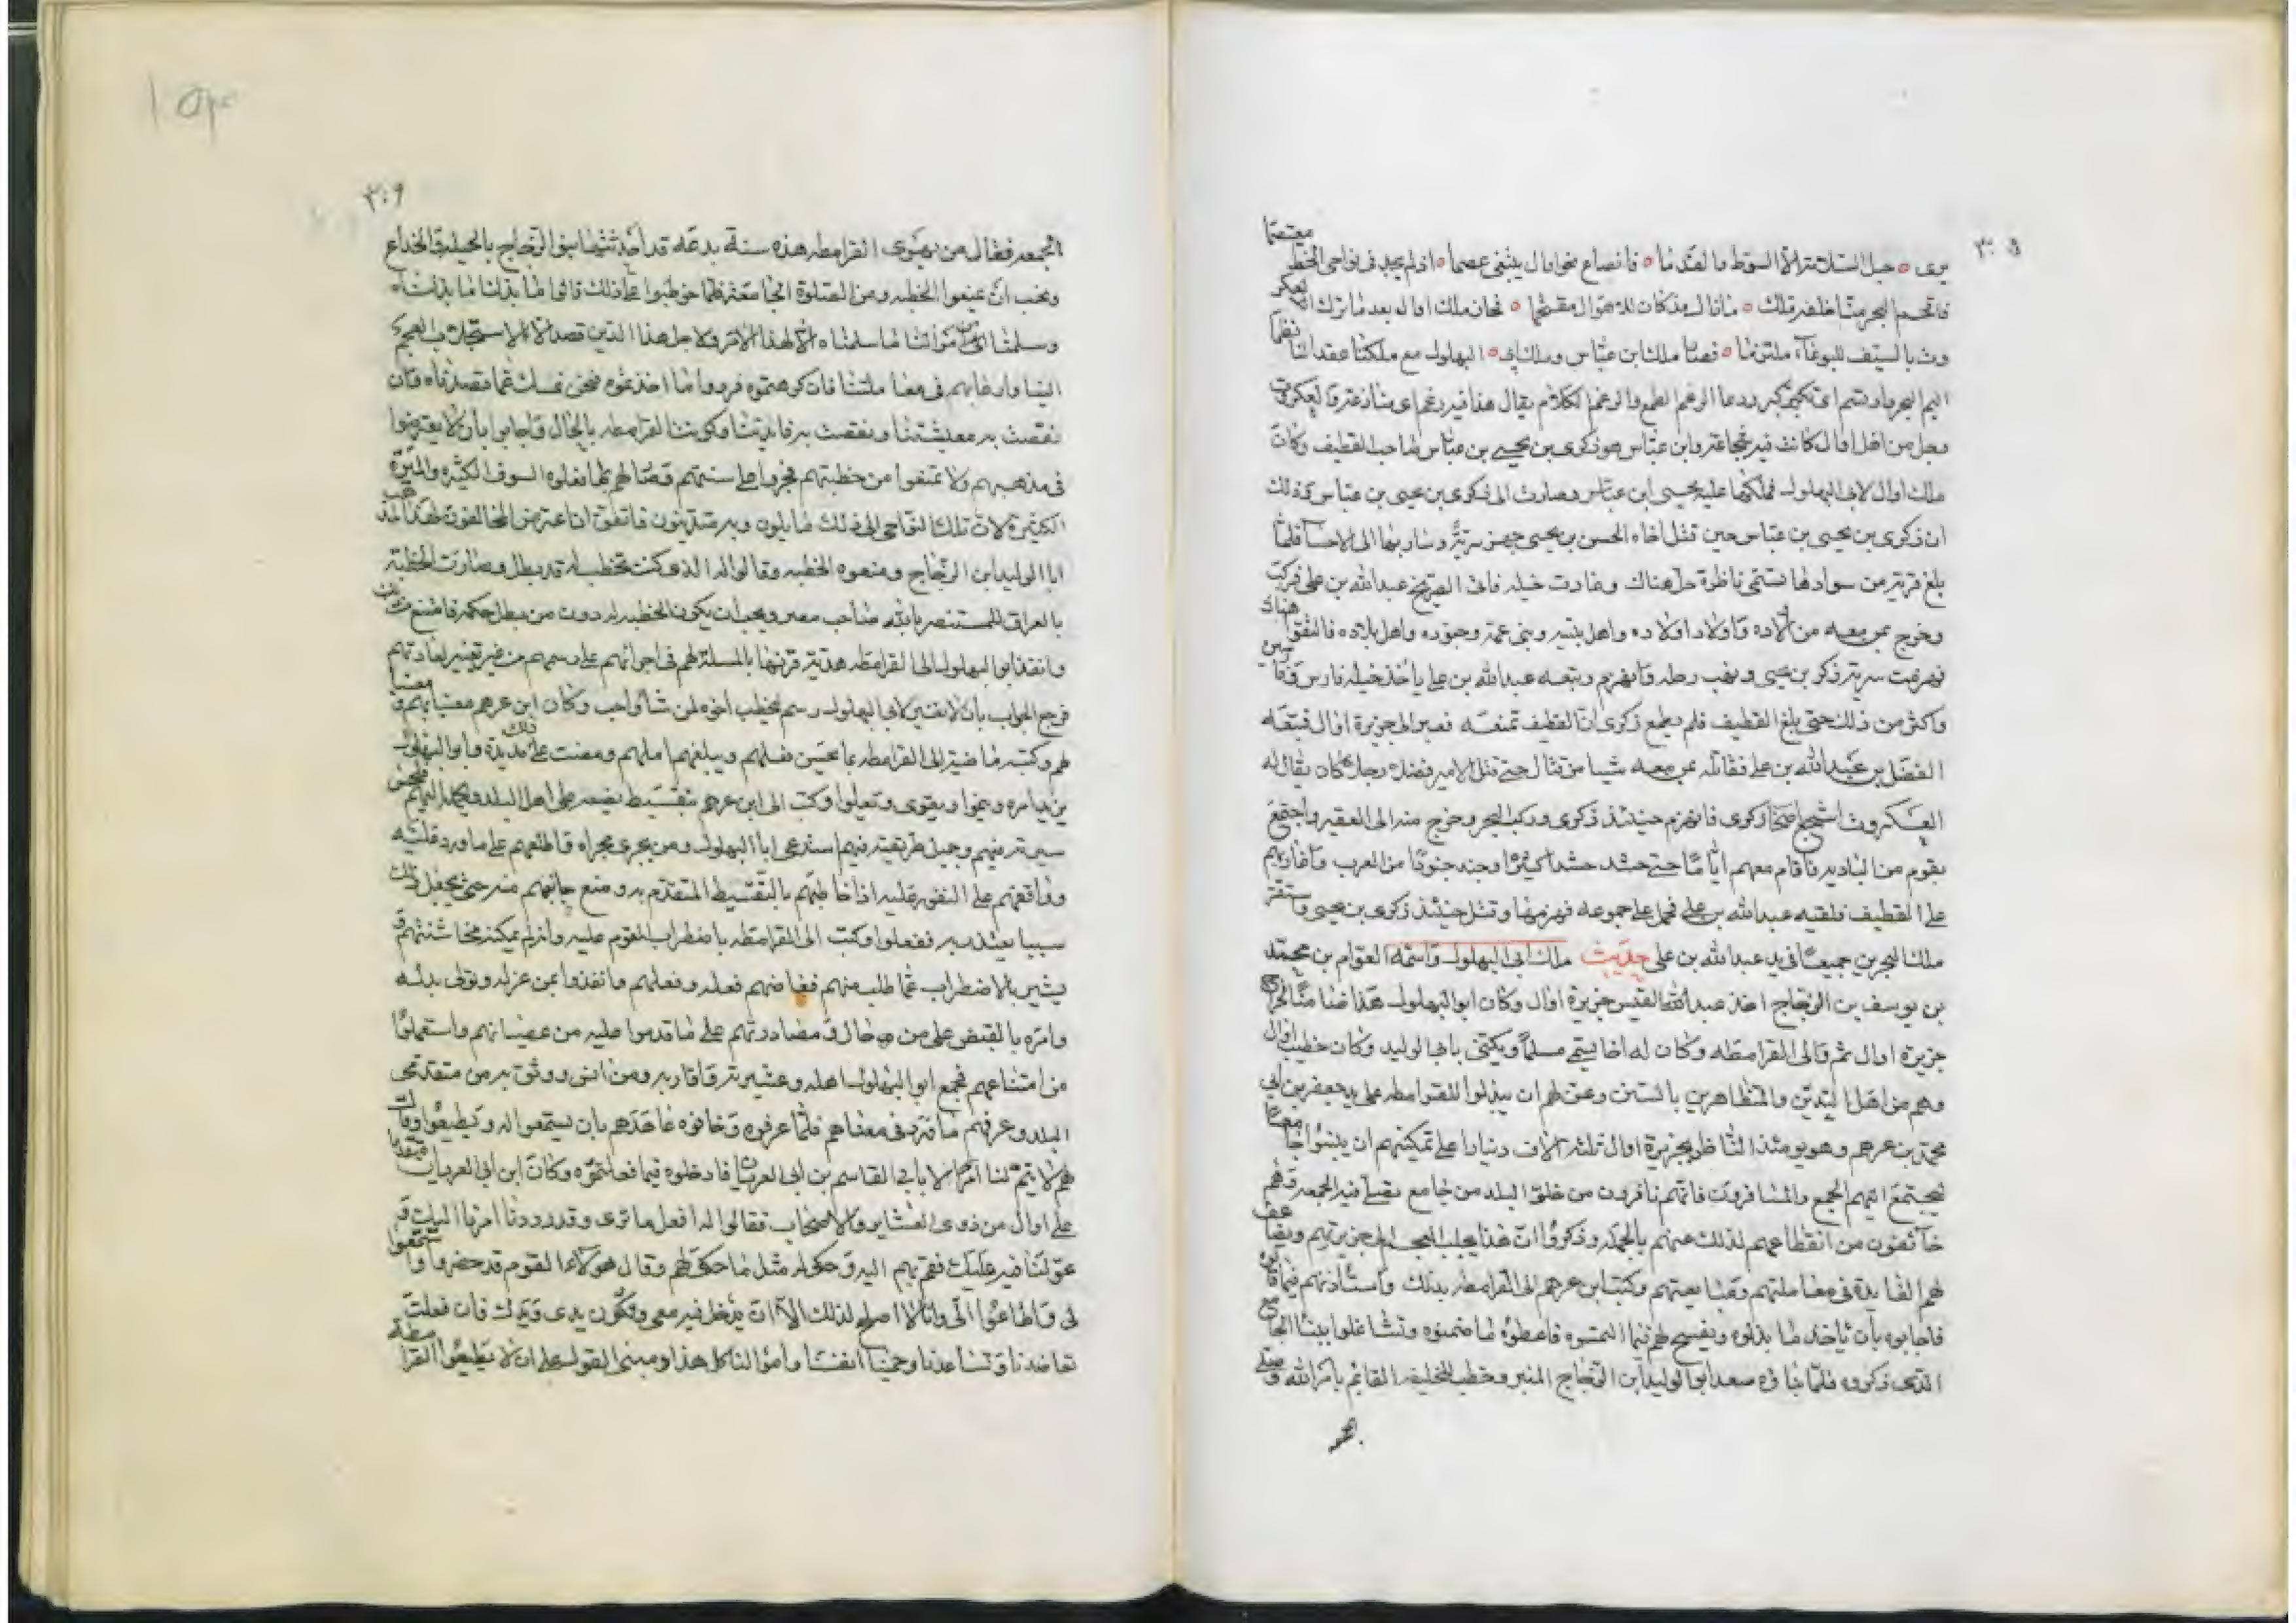 ٣٠٥
يرى ٥ حبل السلامة الا السوط مالفدما ٥ فانصاع نحو اوال يبتغى عصما ٥ اذ لم يجد فى نواحى الخط معتصما
فاقتحم البحر منا خلفه ملك ٥ ما زال مذ كان للاهوال مقتحما ٥ فحاز ملك اوال بعد ما ترك العكر
وت بالسيف للبوغاء ملتزما ٥ فصار ملك ابن عباس وملك ابى ٥ البهلول مع ملكنا عقد لنا نظما
اليم البحر
رجل من اهل اوال كانت فيه شجاعة وابن عباس هو زكرى بن يحيى بن عباس صاحب القطيف وكان
ملك اوال لابى البهلول فملكها عليه يحيى ابن عباس وصارت الى زكرى بن يحيى بن عباس وذلك
ان زكرى بن يحيى بن عباس حين قتل اخاه الحسن بن يحيى جهز سرية وسار بها الى الاحسا فلما
بلغ قرية من سوادها تسمى ناظرة حل هناك وغارت خيله فاتى الصريخ عبدالله بن على فركب
وخرج بمن معه من اولاده واولاد اولاده واهل بيته وبنى عمه وجنوده واهل بلاده فالتقوا هناك
فهزمت سرية زكرى بن يحيى ونهب رحله وانهزم وتبعه عبدالله بن على ياخذ خيله فارس وفارسين
واكثر من ذلك حتى بلغ القطيف فلم يطمع زكرى ان القطيف تمنعه فعبر الى جزيرة اوال فتبعه
الفضل بن عبدالله بن على فقاتله بمن معه شيا من قتال حتى قتل الامير فضل رجلا كان يقال له
العكروت اشجع اصحاب زكرى فانهزم حينئذ زكرى وركب البحر وخرج منه الى العقير واجتمع
بقوم من البادية فاقام معهم اياما حتى حشد حشدا كثيرا وجند جنودا من العرب وغاديهم
على القطيف فلقيه عبدالله بن على فحمل على جموعه فهزمها وقتل حينئذ زكرى بن يحيى واستقر
ملك البحرين جميعها فى يد عبدالله بن على حديث ملك ابى البهلول واسمه العوام بن محمد
بن يوسف بن الزجاج احد عبدالقيس جزيرة اوال وكان ابو البهلول هذا ضامنا لخراج
جزيرة اوال من والى القرامطه وكان له اخا يسمى مسلما ويكنى بابى الوليد وكان خطيب اوال
وهم من اهل التدين والمتظاهرين بالسنن وعن لهم ان يبذلوا للقرامطه على يد جعفر بن ابى
محمد بن عرهم وهو يومئذ الناظر بجزيرة اوال ثلثة الاف دينارا على تمكينهم ان يبنوا جامعا
ليجتمع اليهم العجم والمسافرون فانهم نافرون من خلو البلد من جامع يصلى فيه الجمعه وهم
خائفون من انقطاعهم لذلك عنهم بالجمله وذكروا ان هذا يجلب العجم الى جزيرتهم ويضاعف
لهم الفايدة فى معاملتهم ومبايعتهم وكتب ابن عرهم الى القرامطه بذلك واستاذنهم فيما قالوه
فاجابوه بان ياخذ ما بذلوه ويفسح لهم فيما التمسوه فاعطوه ما ضمنوه وتشاغلوا ببنا الجامع
الذى ذكروه فلما بنا وه صعد ابو الوليد ابن الزجاج المنبر وخطب للخليفه القايم بامر الله وصلى
٣٠٦
الجمعه فقال من يهوى القرامطه هذه سنة بدعه قد احدثها بنو الزجاج بالحيله والخداع
ويجب ان يمنعوا الخطبه ومن الصلوة الجامعه فلما خوطبوا على ذلك قالوا ما بذلنا ما بذلناه
وسلمنا من اموالنا ما سلمناه الا لهذا الامر ولاجل هذا الذين قصدنا الا لاستجلاب العجم
الينا وارغابهم فى معاملتنا فان كرهتموه فردوا ما اخذتموه فنحن نمسك عما قصدناه وان
نقصت به معيشتنا ونقصت به فايدتنا وكوتبت القرامطه بالحال واجابوا بان لا يعترضوا
فى مذهبهم ولا تمنعوا من خطبتهم فجروا على سنتهم وصار لهم بما فعلوه السوق الكثيره والميرة
الكثيره لان تلك النواحى الى ذلك مايلون وبه متدينون فاتفق ان اعترض المخالفون لهذا المذهب
ابا الوليد ابن الزجاج ومنعوه الخطبه وقالوا له الذى كنت تخطب له قد بطل وصارت الخطبة
بالعراق للمستنصر بالله صاحب مصر ويجب ان يكون الخطبه له دون من بطل حكمه فامتنع من ذلك
وانفذ ابو البهلول الى القرامطه هدية قرنها بالمسئلة لهم فى اجرائهم على رسمهم من غير تغيير لعادتهم
فرجع الجواب بان لا نغير لابى البهلول رسم يخطب اخوه لمن شا واحب وكان ابن عرهم معينا لهم و
لهم وكتبه ماضيه الى القرامطه بما يحسن فعلهم ويبلغهم املهم ومضت على ذلك مديدة وابو البهلول
يزيد امره وينموا ويقوى وتعلوا وكتب الى ابن عرهم بتقسيط يضعه على اهل البلد
سيرته فيهم وجميل طريقته فيهم استدعى ابا البهلول ومن يجرى مجراه فاطلعهم على ما ورد عليه
وواقفهم على النفور عليه اذا خاطبهم بالتقسيط المتقدم به ومنع جانبهم منه حتى يجعل ذلك
سببا يعتذر به ففعلوا وكتب الى القرامطه باضطراب القوم عليه وانه لم يمكنه مخاشنتهم و
يشير بالاضطراب عما طلب منهم فغاضهم فعله وفعلهم وانفذوا بمن عزله وتولى بدله
وامره بالقبض على من وحال و مصادرتهم على ما قدموا عليه من عصيانهم واستعملوا
من امتناعهم فجمع ابو البهلول اهله وعشيرته واقاربه ومن انس ووثق به من متقدمى
البلد وعرفهم ما ورد فى معناهم فلما عرفوه وخافوه عاهدهم بان يستمعوا له ويطيعوا وقالت
لهم لا يتم لنا امر الا بابى القاسم بن ابى العريان فادخلوه فيما فعلتموه وكان ابن ابى العريان متقدما
على اوال من ذوى العشاير والاصحاب فقالوا له افعل ما ترى وقد رددنا امرنا اليك و
عولنا فيه عليك فمضى بهم اليه وحكى له مثل ما حكى لهم وقال هؤلاء القوم قد حضروا واستمعوا
لى واطاعوا الى وانا لا اصلح لذلك الا ان يدخل فيه معى وتكون يدى ويدك فان فعلت
تعاضدنا وتساعدنا وحمينا انفسنا واموالنا كل هذا ومبنى القول على ان لا يطيعوا القرامطة